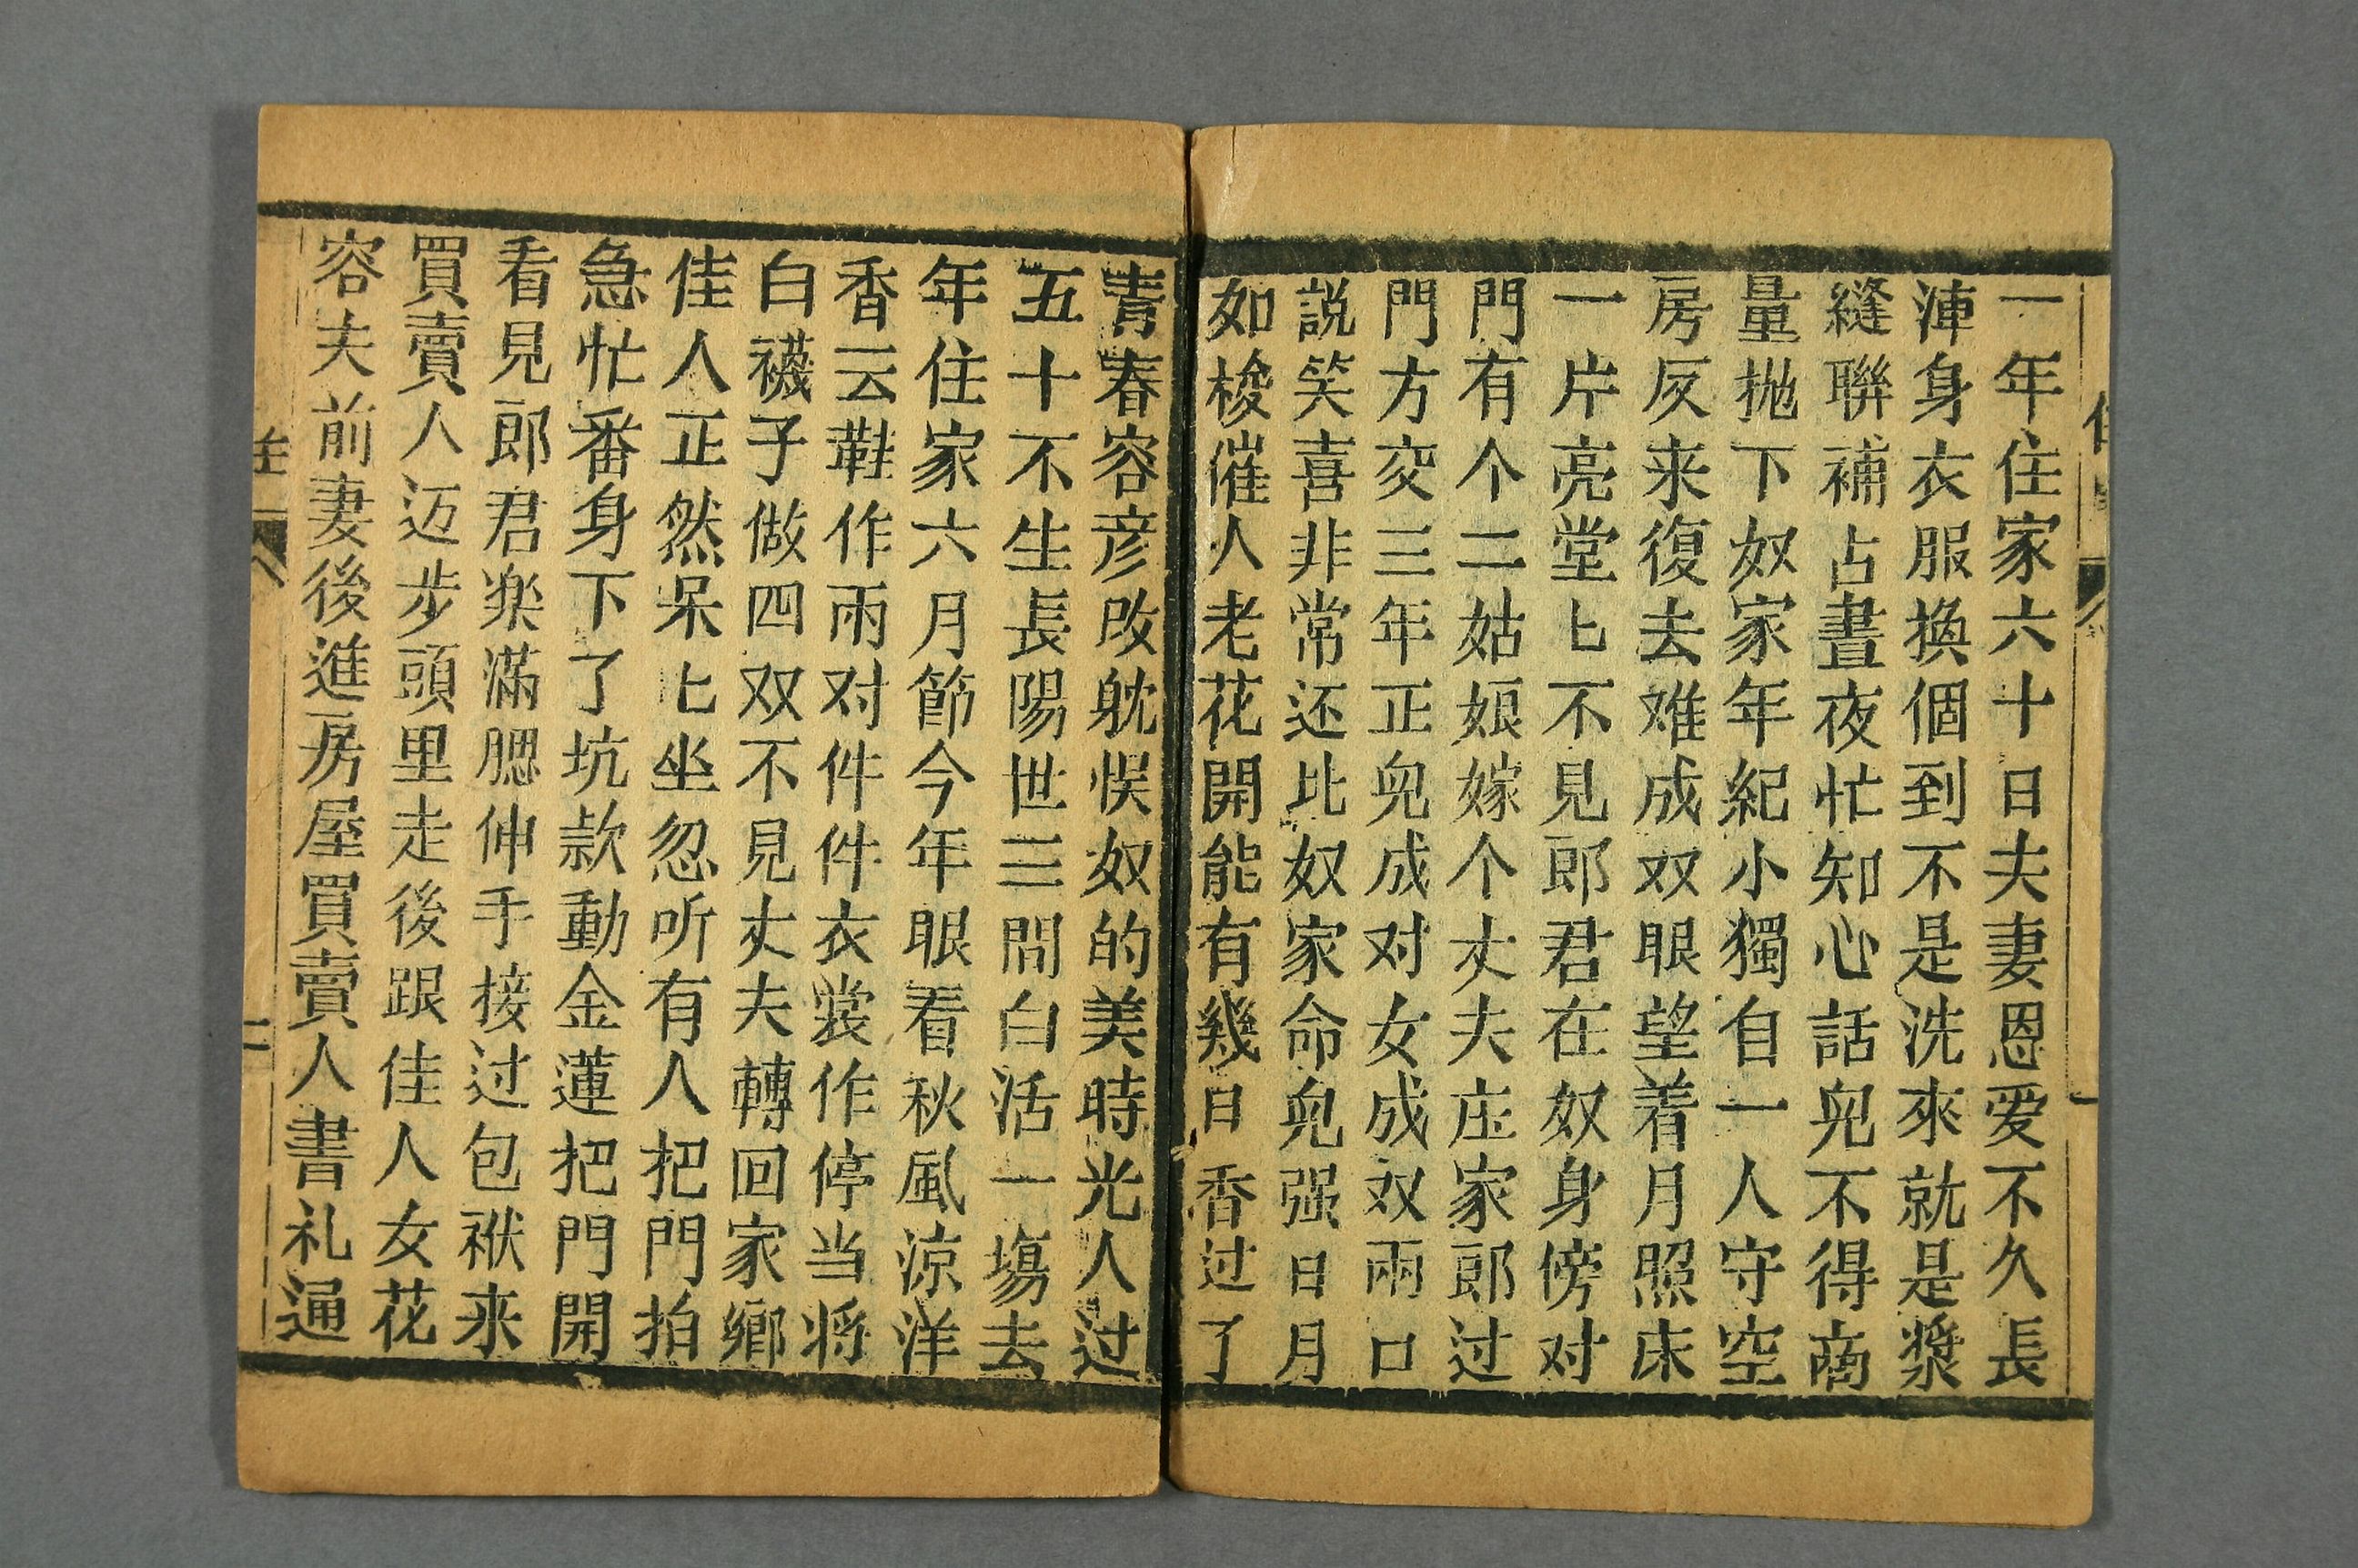 一年住家六十日夫妻恩爱不久長
渾身衣服換個到不是洗來就是漿
縫聨補占晝夜忙知心話兒不得啇
量抛下奴家年紀小獨自一人守空
房反来復去难成双眼望着月照床
一片亮堂匕不見郎君在奴身傍对
門有个二姑娘嫁个丈夫庄家郎过
門方交三年正兒成对女成双兩口
説笑喜非常还比奴家命兒强日月
如梭催人老花開能有幾日香过了
青春容彦改躭悮奴的美時光人过
五十不生長陽世三間白活一塲去
年住家六月節今年眼看秋風凉洋
香云鞋作兩对件件衣裳作停当将
白襪子做四双不見丈夫轉回家鄉
佳人正然呆匕坐忽听有人把門拍
急忙番身下了坑款動金蓮把門開
看見郎君楽滿腮伸手接过包袱来
買賣人迈步頭里走後跟佳人女花
容夫前妻後進房屋買賣人書礼通
二